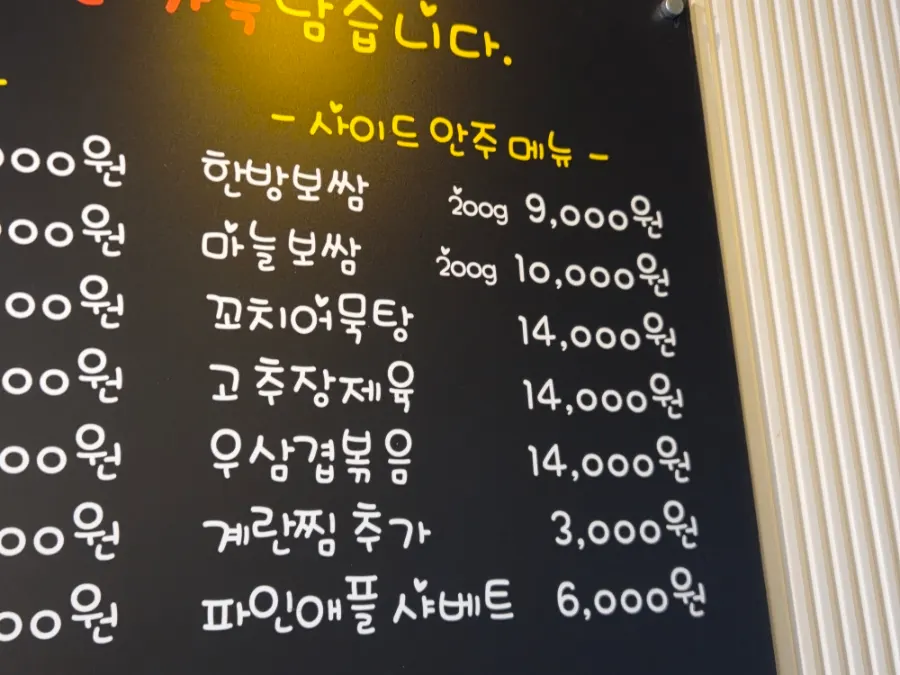 남습니다.
- 사이드 안주 메뉴 -
한방보쌈 200g 9,000원
마늘보쌈 200g 10,000원
꼬치어묵탕 14,000원
고추장제육 14,000원
우삼겹볶음 14,000원
계란찜 추가 3,000원
파인애플 샤베트 6,000원